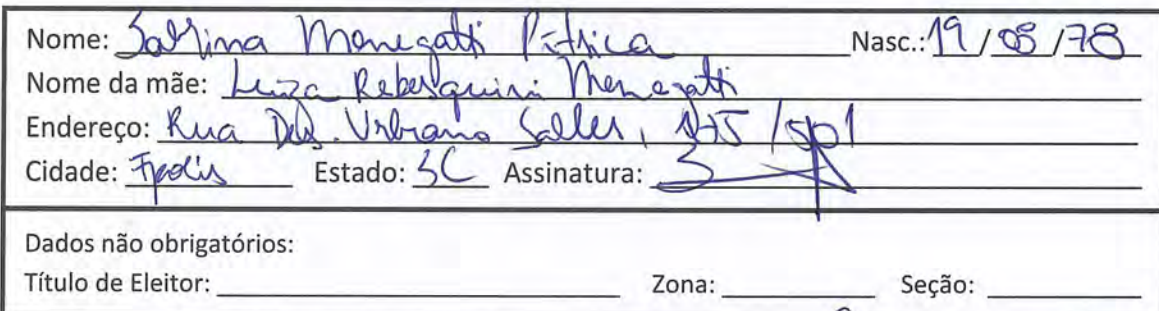 Nome: Sabrina Menegatti Pítsica Nasc.: 19 / 08 / 78
Nome da mãe: Luiza Rebesquini Menegatti
Endereço: Rua Des. Urbano Salles, /
Cidade: Fpolis Estado: SC Assinatura:
Dados não obrigatórios:
Título de Eleitor: Zona: Seção: